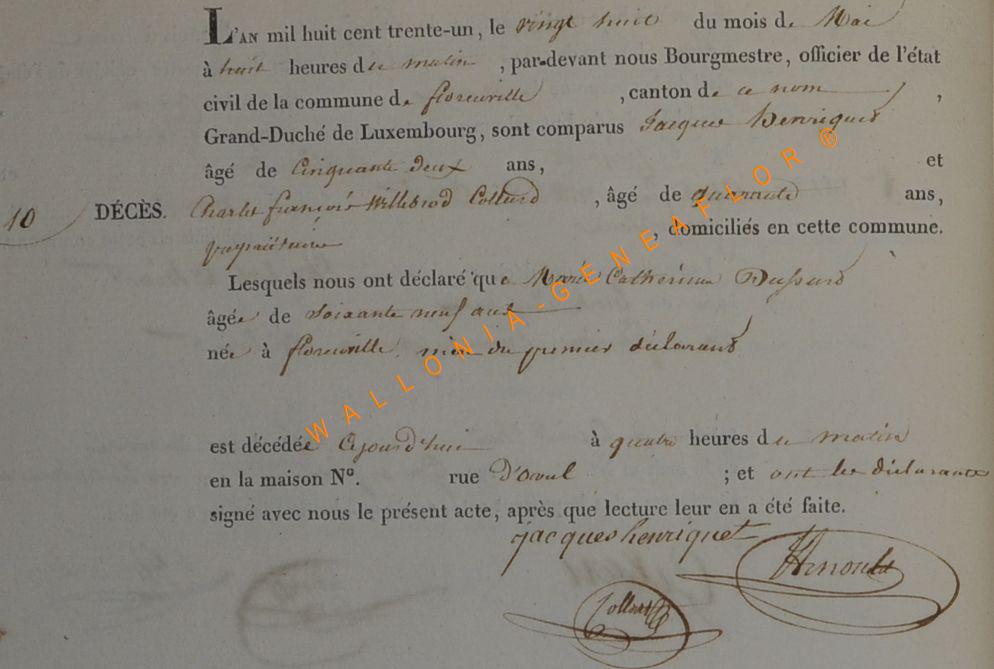 L'AN mil huit cent trente-un, le vingt huit du mois de Mai
à huit heures du matin, par-devant nous Bourgmestre, officier de l'état
civil de la commune de florenville, canton de ce nom,
Grand-Duché de Luxembourg, sont comparus Jacques Henriquet
âgé de Cinquante deux ans, et
10 DÉCÈS. Charles françois Willebrod Collard, âgé de quarante ans,
propriétaire, domiciliés en cette commune.
Lesquels nous ont déclaré que Marie Catherine
âgée de soixante neuf ans
née à florenville, du premier déclarant
est décédée ajourd'hui à quatre heures du matin
en la maison No. rue D'orval ; et ont les déclarants
signé avec nous le présent acte, après que lecture leur en a été faite.
jacques henriquet
Collard
WALLONIA-GENEAFLOR®